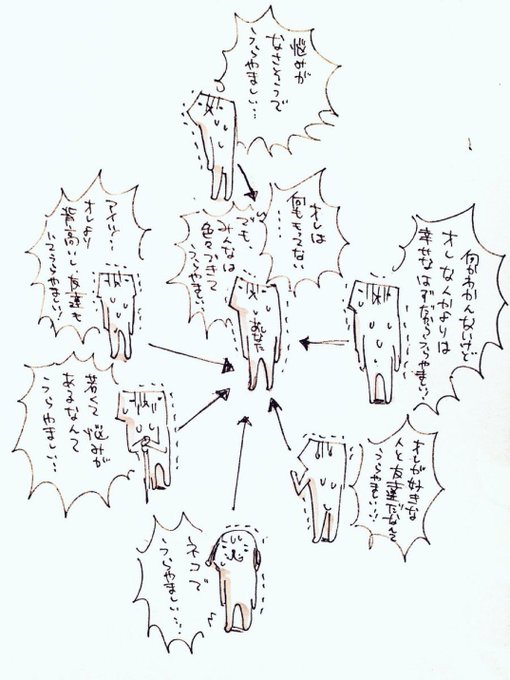 悩みが
なさそうで
うらやましい…
オレは
何ももってない
……
でも、
みんなは
色々できて
うらやましい…
あなた
アイツ…
オレより
背高いし、友達も
いてうらやましい!
何かわかんないけど
オレなんかよりは
幸せなはずだからうらやましい!
若くて悩みが
あるなんて
うらやましい…
オレが好きな
人と友達だなんて
うらやましい…!
ネコで
うらやましい…